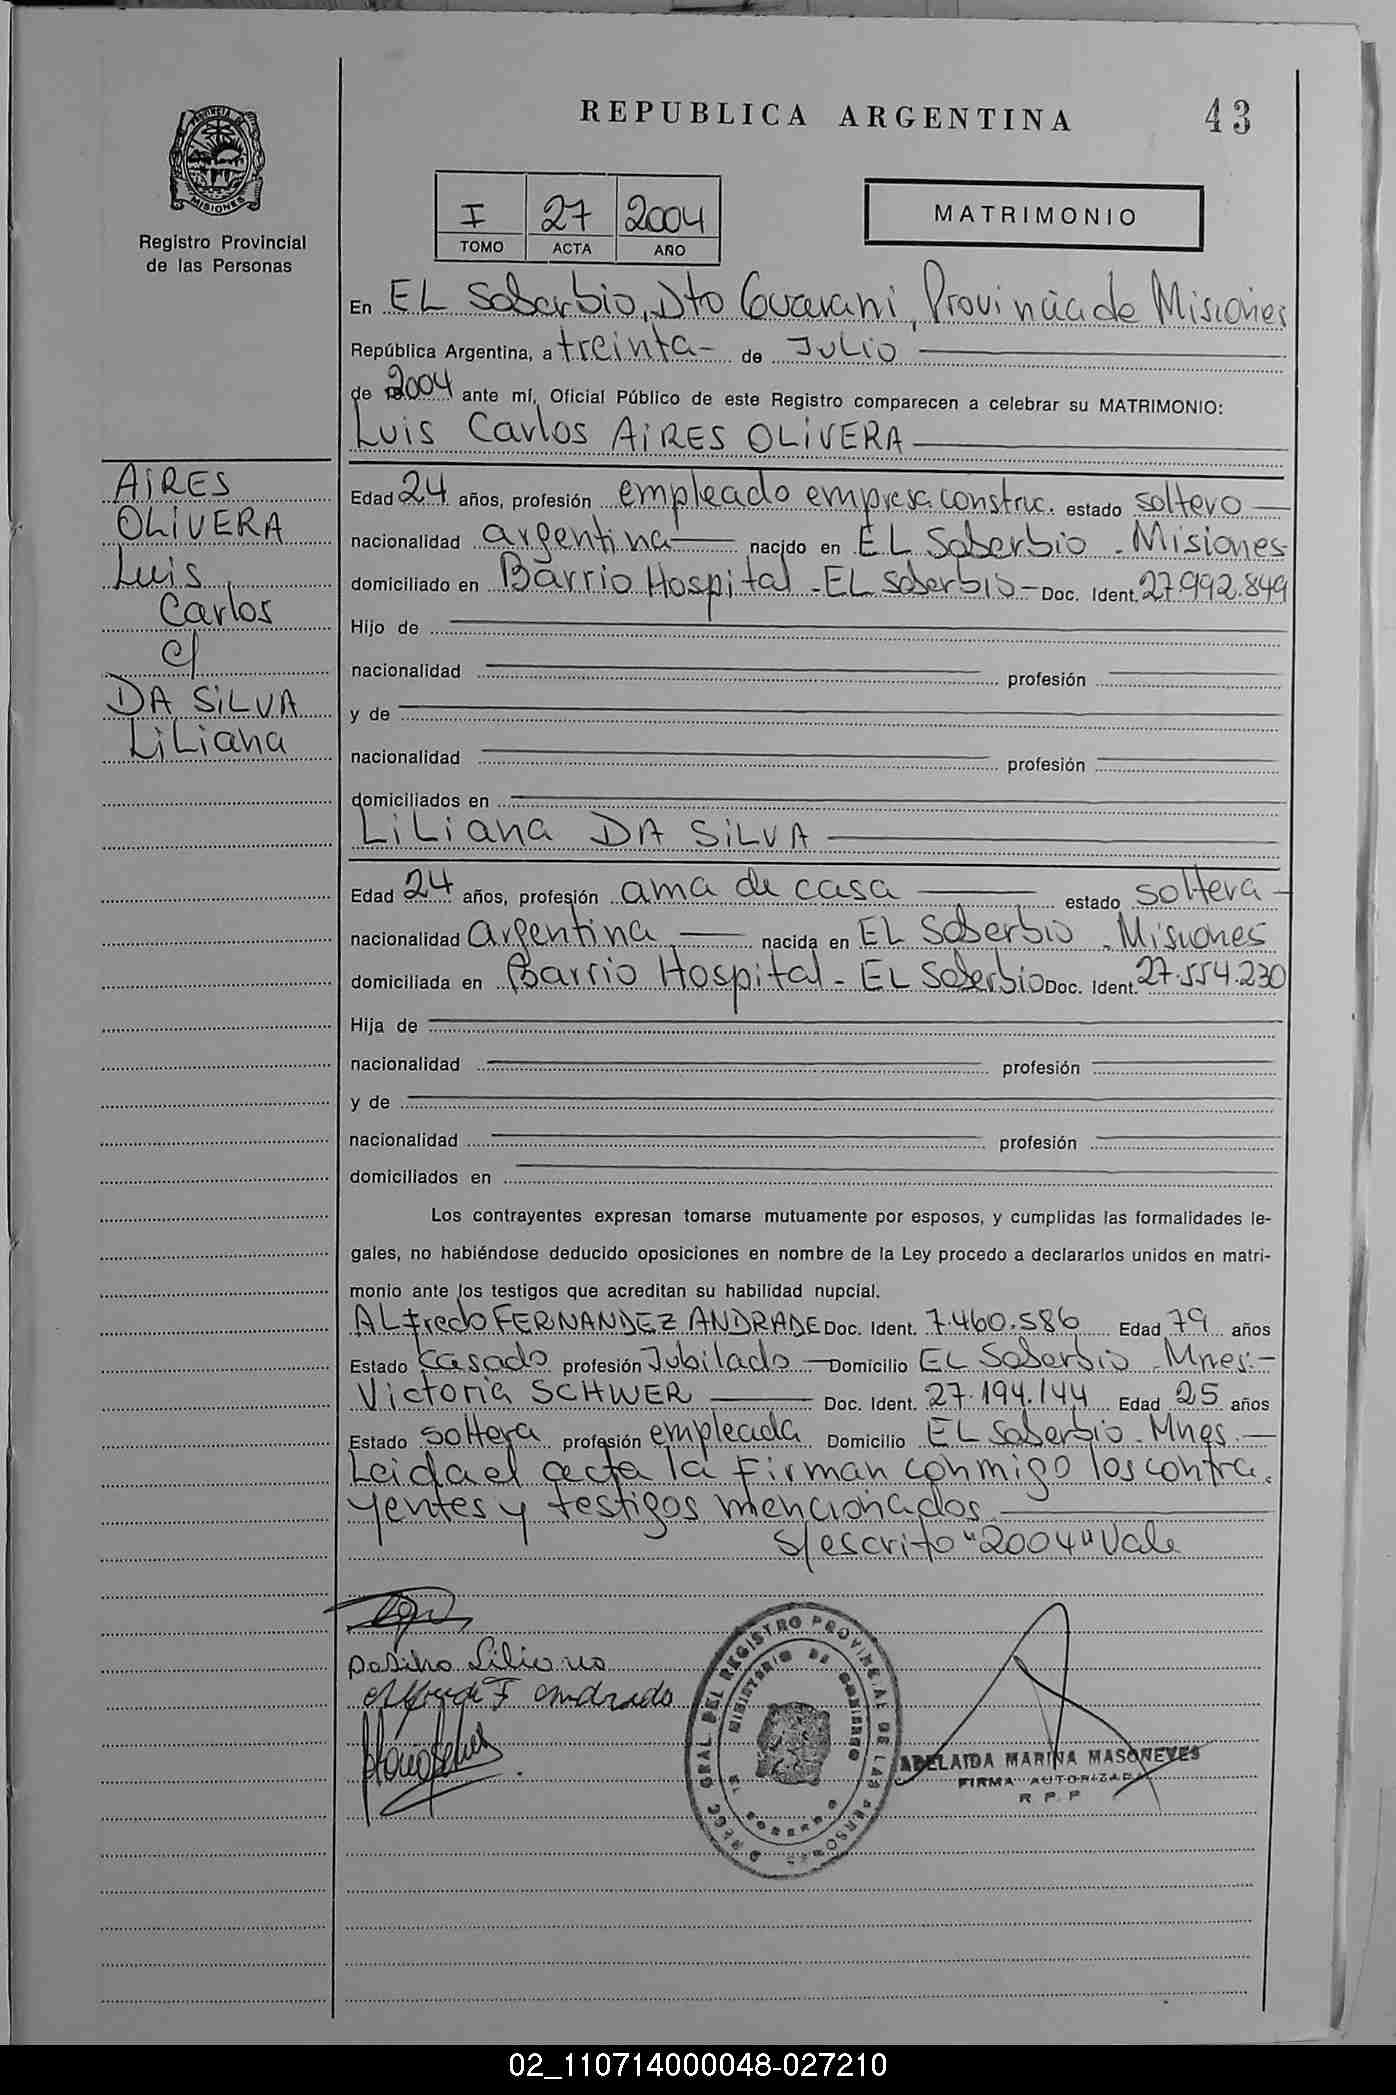 REPUBLICA ARGENTINA
43
PROVINCIA DE MISIONES
Registro Provincial
de las Personas
I 27 2004
TOMO ACTA AÑO
MATRIMONIO
En EL Soberbio, Dto Guarani, Provincia de Misiones
República Argentina, a treinta - de Julio
de 2004 ante mí, Oficial Público de este Registro comparecen a celebrar su MATRIMONIO:
Luis Carlos AIRES OLIVERA
AIRES
OLIVERA
Luis
Carlos
c/
DA SILVA
Liliana
Edad 24 años, profesión empleado empresa construc. estado soltero
nacionalidad argentina nacido en EL Soberbio - Misiones
domiciliado en Barrio Hospital - EL Soberbio - Doc. Ident. 27.992.849
Hijo de
nacionalidad profesión
y de
nacionalidad profesión
domiciliados en
Liliana DA SILVA
Edad 24 años, profesión ama de casa estado soltera -
nacionalidad argentina nacida en EL Soberbio - Misiones
domiciliada en Barrio Hospital - EL Soberbio Doc. Ident. 27.554.230
Hija de
nacionalidad profesión
y de
nacionalidad profesión
domiciliados en
Los contrayentes expresan tomarse mutuamente por esposos, y cumplidas las formalidades le-
gales, no habiéndose deducido oposiciones en nombre de la Ley procedo a declararlos unidos en matri-
monio ante los testigos que acreditan su habilidad nupcial.
ALfredo FERNANDEZ ANDRADE Doc. Ident. 7.460.586 Edad 79 años
Estado casado profesión Jubilado - Domicilio EL Soberbio - Mnes. -
Victoria SCHWER Doc. Ident. 27.194.144 Edad 25 años
Estado soltera profesión empleada Domicilio EL Soberbio - Mnes. -
Leida el acta la firman conmigo los contra
yentes y testigos mencionados
s/escrito "2004" Vale
Dasilva Liliana
Alfredo F Andrade
DIRECC. GRAL. DEL REGISTRO PROVINCIAL DE LAS PERSONAS
MINISTERIO DE GOBIERNO
EL SOBERBIO
ADELAIDA MARINA MASONEVES
FIRMA AUTORIZADA
R P P
02_110714000048-027210